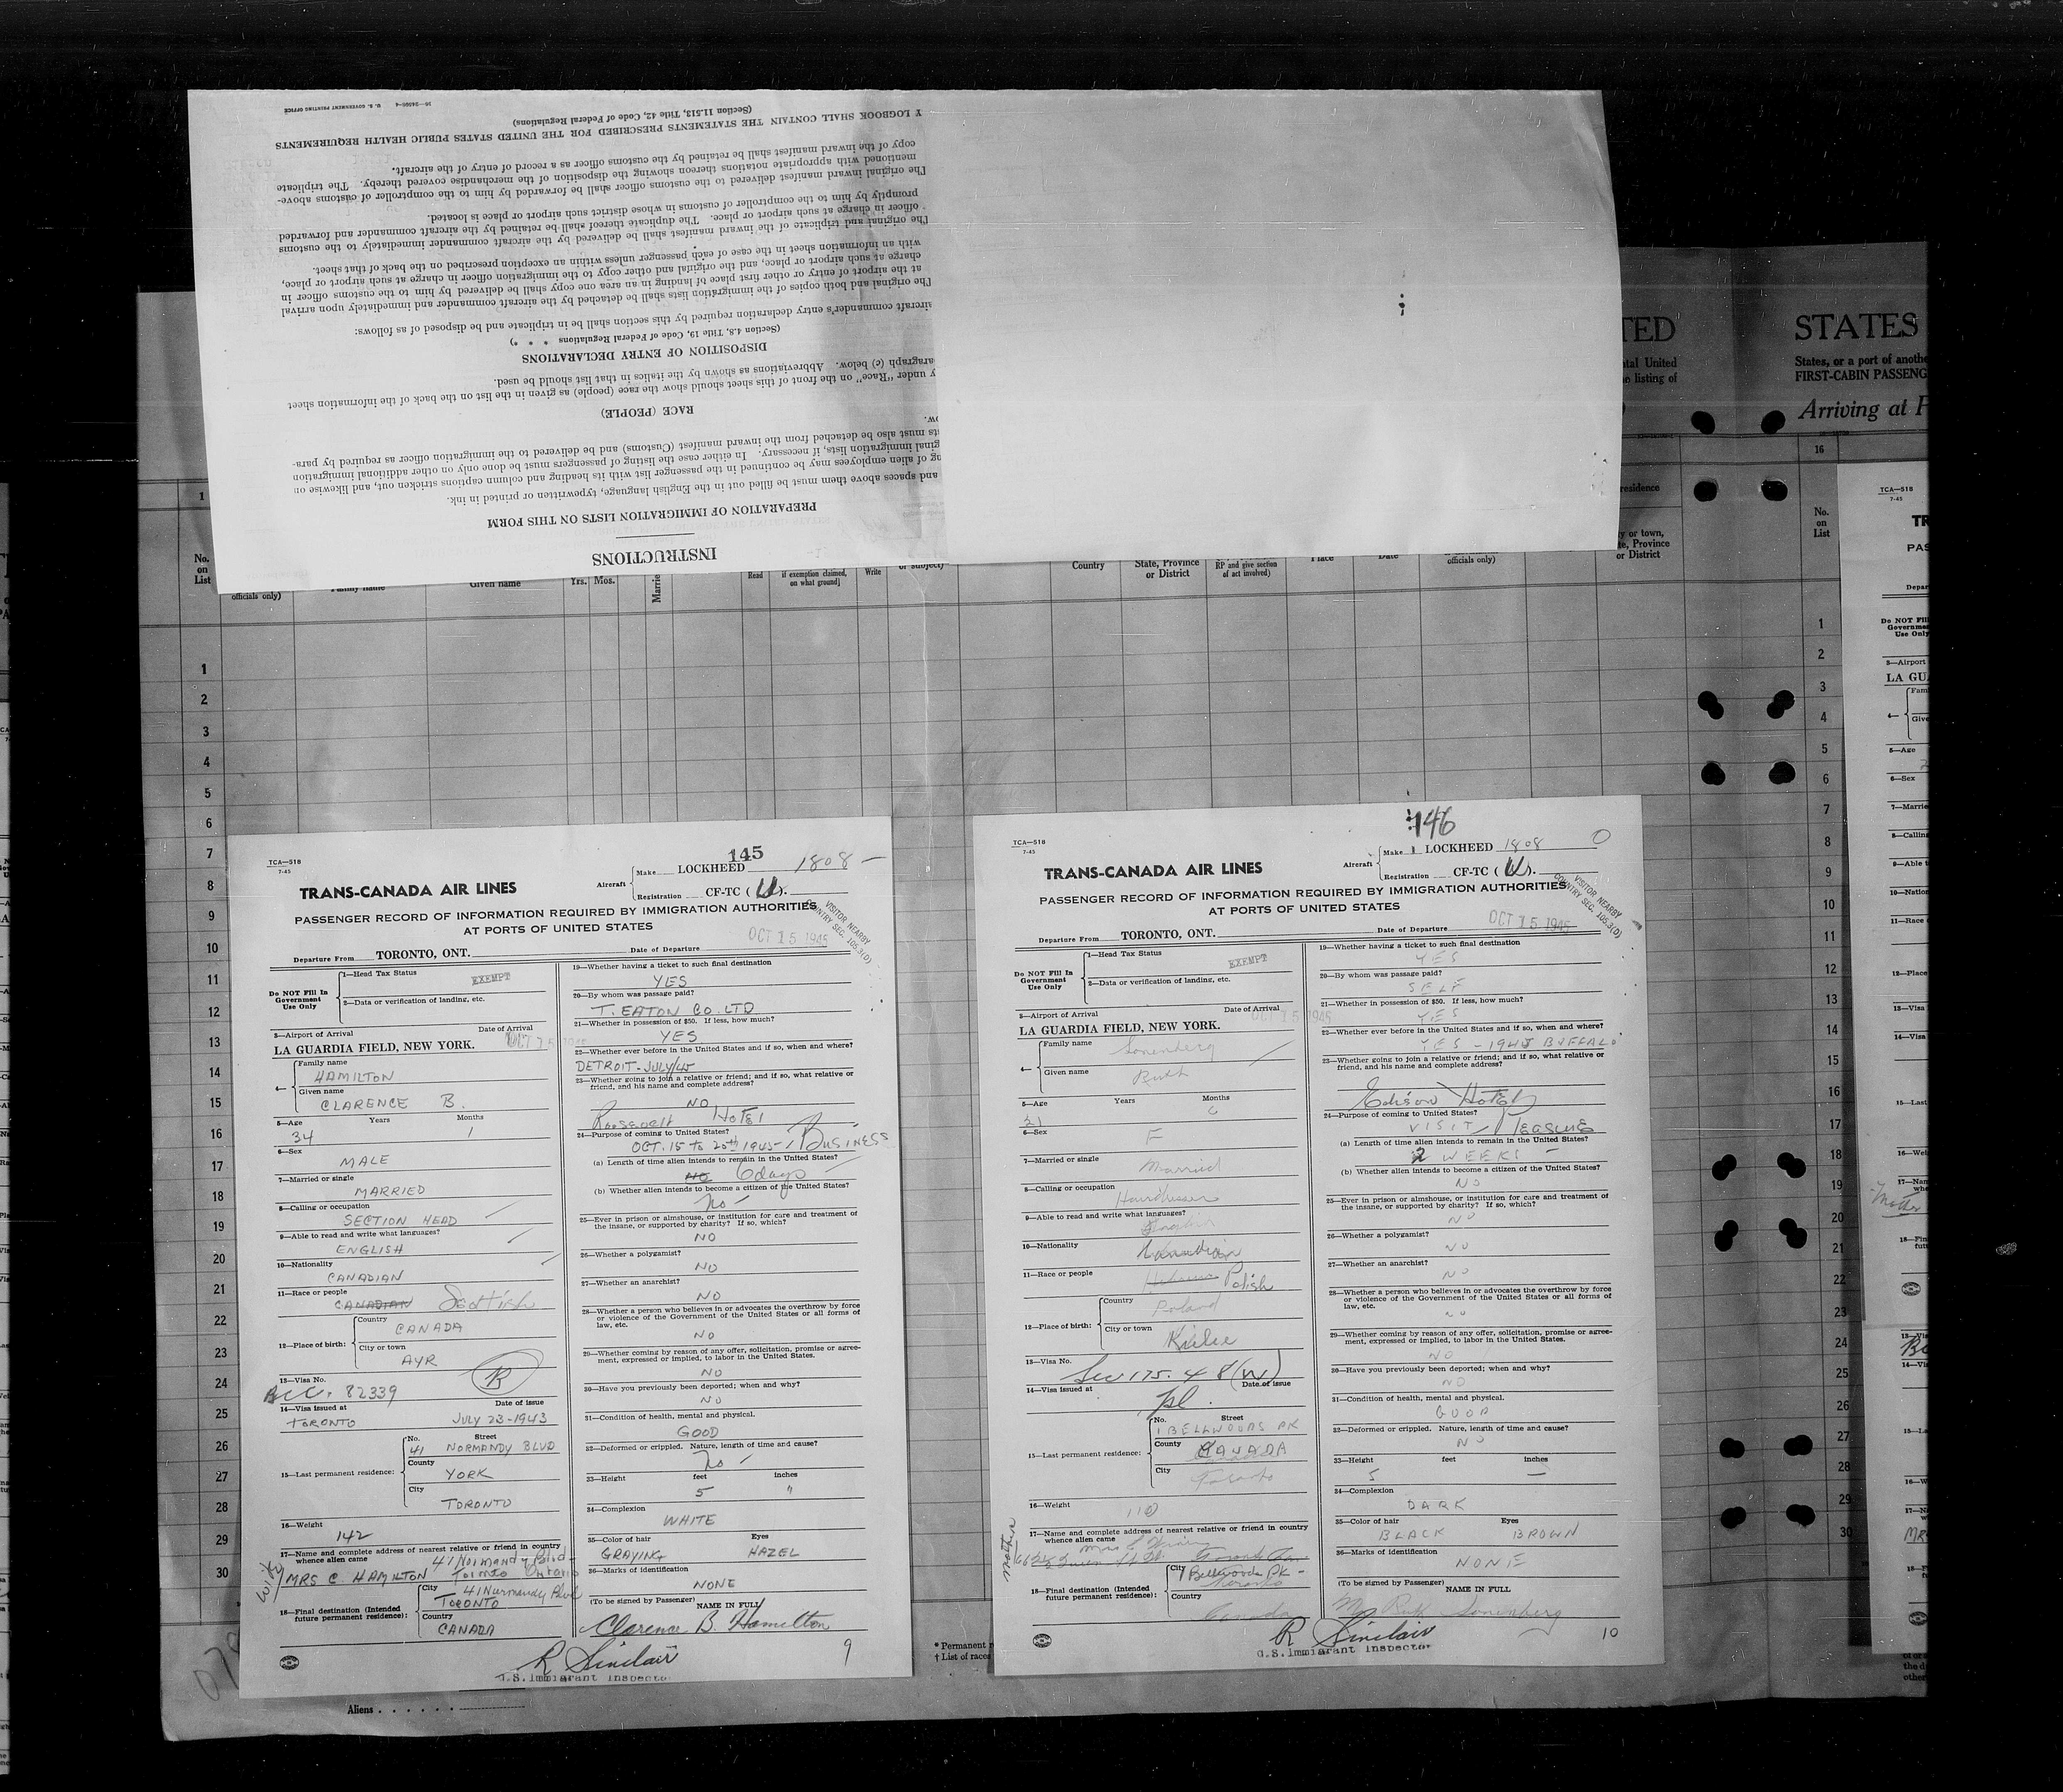 INSTRUCTIONS
PREPARATION OF IMMIGRATION LISTS ON THIS FORM
and spaces above them must be filled out in the English language, typewritten or printed in ink.
of alien employees may be continued in the passenger list with its heading and column captions stricken out, and likewise on
immigration lists, if necessary. In either case the listing of passengers must be done only on other additional immigration
must also be detached from the inward manifest (Customs) and be delivered to the immigration officer as required by para-
RACE (PEOPLE)
under "Race" on the front of this sheet should show the race (people) as given in the list on the back of the information sheet
paragraph (c) below. Abbreviations as shown by the italics in that list should be used.
DISPOSITION OF ENTRY DECLARATIONS
(Section 4.8, Title 19, Code of Federal Regulations * * *)
aircraft commander's entry declaration required by this section shall be in triplicate and be disposed of as follows:
The original and both copies of the immigration lists shall be detached by the aircraft commander and immediately upon arrival
at the airport of entry or other first place of landing in an area one copy shall be delivered by him to the customs officer in
charge at such airport or place, and the original and other copy to the immigration officer in charge at such airport or place,
with an information sheet in the case of each passenger unless within an exception prescribed on the back of that sheet.
The original and triplicate of the inward manifest shall be delivered by the aircraft commander immediately to the customs
officer in charge at such airport or place. The duplicate thereof shall be retained by the aircraft commander and forwarded
promptly by him to the comptroller of customs in whose district such airport or place is located.
The original inward manifest delivered to the customs officer shall be forwarded by him to the comptroller of customs above-
mentioned with appropriate notations thereon showing the disposition of the merchandise covered thereby. The triplicate
copy of the inward manifest shall be retained by the customs officer as a record of entry of the aircraft.
Y LOGBOOK SHALL CONTAIN THE STATEMENTS PRESCRIBED FOR THE UNITED STATES PUBLIC HEALTH REQUIREMENTS
(Section 11.513, Title 42, Code of Federal Regulations)
U. S. GOVERNMENT PRINTING OFFICE
TED STATES
States, or a port of anothe
FIRST-CABIN PASSENG
Arriving at P
No. on List
Given name
Yrs. Mos.
Read
if exemption claimed, on what ground]
Write
Country
State, Province or District
RP and give section of act involved)
Place
Date
officials only)
or town, Province or District
16
No. on List
145
TCA—518
7-45
TRANS-CANADA AIR LINES
Aircraft
Make LOCKHEED 1808 —
Registration CF-TC (U).
PASSENGER RECORD OF INFORMATION REQUIRED BY IMMIGRATION AUTHORITIES
AT PORTS OF UNITED STATES
VISITOR NEARBY
COUNTRY SEC. 105.3(D)
Departure From TORONTO, ONT.
Date of Departure OCT 15 1945
Do NOT Fill In Government Use Only
1—Head Tax Status EXEMPT
2—Data or verification of landing, etc.
3—Airport of Arrival
Date of Arrival
LA GUARDIA FIELD, NEW YORK. OCT 15 1945
4—
Family name
HAMILTON
Given name
CLARENCE B.
5—Age Years Months
34 1
6—Sex
MALE
7—Married or single
MARRIED
8—Calling or occupation
SECTION HEAD
9—Able to read and write what languages?
ENGLISH
10—Nationality
CANADIAN
11—Race or people
CANADIAN Scottish
12—Place of birth:
Country
CANADA
City or town
AYR
13—Visa No.
BCC. 82339
14—Visa issued at Date of issue
TORONTO JULY 23-1943
15—Last permanent residence:
No. Street
41 NORMANDY BLVD
County
YORK
City
TORONTO
16—Weight
142
17—Name and complete address of nearest relative or friend in country whence alien came
wife
MRS C. HAMILTON
41 Normandy Blvd -
Toronto Ontario
18—Final destination (Intended future permanent residence):
City
41 Normandy Blvd
TORONTO
Country
CANADA
19—Whether having a ticket to such final destination
YES
20—By whom was passage paid?
T. EATON CO. LTD
21—Whether in possession of $50. If less, how much?
YES
22—Whether ever before in the United States and if so, when and where?
DETROIT - JULY/45
23—Whether going to join a relative or friend; and if so, what relative or friend, and his name and complete address?
NO
Roosevelt Hotel
24—Purpose of coming to United States?
OCT. 15 to 20th 1945 / BUSINESS
(a) Length of time alien intends to remain in the United States?
NO 6 days
(b) Whether alien intends to become a citizen of the United States?
No
25—Ever in prison or almshouse, or institution for care and treatment of the insane, or supported by charity? If so, which?
NO
26—Whether a polygamist?
NO
27—Whether an anarchist?
NO
28—Whether a person who believes in or advocates the overthrow by force or violence of the Government of the United States or all forms of law, etc.
NO
29—Whether coming by reason of any offer, solicitation, promise or agreement, expressed or implied, to labor in the United States.
NO
30—Have you previously been deported; when and why?
NO
31—Condition of health, mental and physical.
GOOD
32—Deformed or crippled. Nature, length of time and cause?
No
33—Height feet inches
5 "
34—Complexion
WHITE
35—Color of hair Eyes
GRAYING HAZEL
36—Marks of identification
NONE
(To be signed by Passenger)
NAME IN FULL
Clarence B. Hamilton
R Sinclair
U.S. Immigrant Inspector
9
Aliens . . . . . .
146
TCA—518
7-45
TRANS-CANADA AIR LINES
Aircraft
Make LOCKHEED 1808
Registration CF-TC (U).
PASSENGER RECORD OF INFORMATION REQUIRED BY IMMIGRATION AUTHORITIES
AT PORTS OF UNITED STATES
VISITOR NEARBY
COUNTRY SEC. 105.3(D)
Departure From TORONTO, ONT.
Date of Departure OCT 15 1945
Do NOT Fill In Government Use Only
1—Head Tax Status EXEMPT
2—Data or verification of landing, etc.
3—Airport of Arrival
Date of Arrival
LA GUARDIA FIELD, NEW YORK. OCT 15 1945
4—
Family name
Sonenberg
Given name
Ruth
5—Age Years Months
21 6
6—Sex
F
7—Married or single
Married
8—Calling or occupation
Hairdresser
9—Able to read and write what languages?
English
10—Nationality
Canadian
11—Race or people
Polish
12—Place of birth:
Country
Poland
City or town
Kielce
13—Visa No.
Sec 175.48(w)
14—Visa issued at Date of issue
15—Last permanent residence:
No. Street
1 BELLWOODS PK
County
CANADA
City
Toronto
16—Weight
110
17—Name and complete address of nearest relative or friend in country whence alien came
Mother
18—Final destination (Intended future permanent residence):
City
1 Bellwoods Pk -
Toronto
Canada
19—Whether having a ticket to such final destination
YES
20—By whom was passage paid?
SELF
21—Whether in possession of $50. If less, how much?
YES
22—Whether ever before in the United States and if so, when and where?
YES - 1945 BUFFALO
23—Whether going to join a relative or friend; and if so, what relative or friend, and his name and complete address?
Edison Hotel
24—Purpose of coming to United States?
VISIT / Pleasure
(a) Length of time alien intends to remain in the United States?
2 WEEKS
(b) Whether alien intends to become a citizen of the United States?
NO
25—Ever in prison or almshouse, or institution for care and treatment of the insane, or supported by charity? If so, which?
NO
26—Whether a polygamist?
NO
27—Whether an anarchist?
NO
28—Whether a person who believes in or advocates the overthrow by force or violence of the Government of the United States or all forms of law, etc.
NO
29—Whether coming by reason of any offer, solicitation, promise or agreement, expressed or implied, to labor in the United States.
NO
30—Have you previously been deported; when and why?
NO
31—Condition of health, mental and physical.
GOOD
32—Deformed or crippled. Nature, length of time and cause?
NO
33—Height feet inches
5 —
34—Complexion
DARK
35—Color of hair Eyes
BLACK BROWN
36—Marks of identification
NONE
(To be signed by Passenger)
NAME IN FULL
Mrs Ruth Sonenberg
R Sinclair
U.S. Immigrant Inspector
10